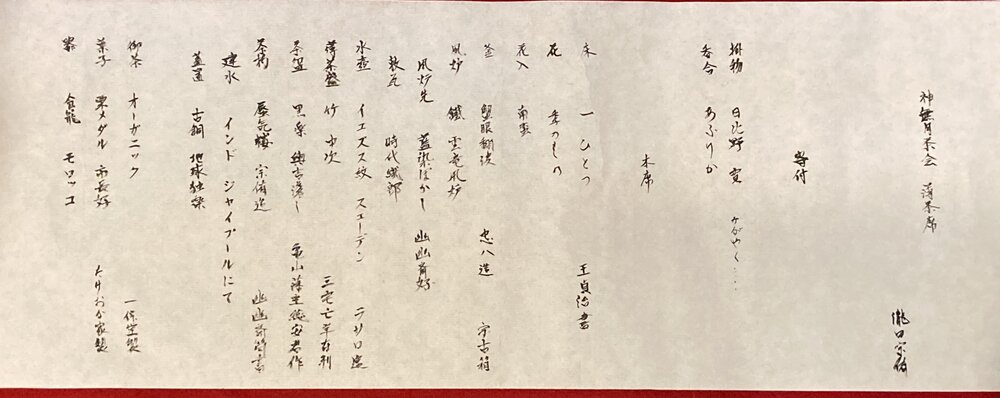 神無月茶会 薄茶席
瀧口宗
寄付
掛物 日比野 寅 かがやく‥‥
香合 あふりか
本席
床 一 ひとつ 王貞治書
花 季のもの
花入 南蛮
釜 堅眼 忠八造 宗古箱
風炉 鐵 雲竜風炉
風炉先 藍染ぼかし 幽幽斎好
敷瓦 時代織部
水壺 イエズス紋 スエーデン ラサロ窯
薄茶盤 竹 中次 三宅亡羊在判
茶盌 黒楽 亀山
茶杓 宗 造 幽幽斎箱書
建水 インド ジャイプールにて
蓋置 古銅 地球独楽
御茶 オーガニック 一保堂製
菓子 栗メダル 市長好 たけおか家製
器 食籠 モロッコ